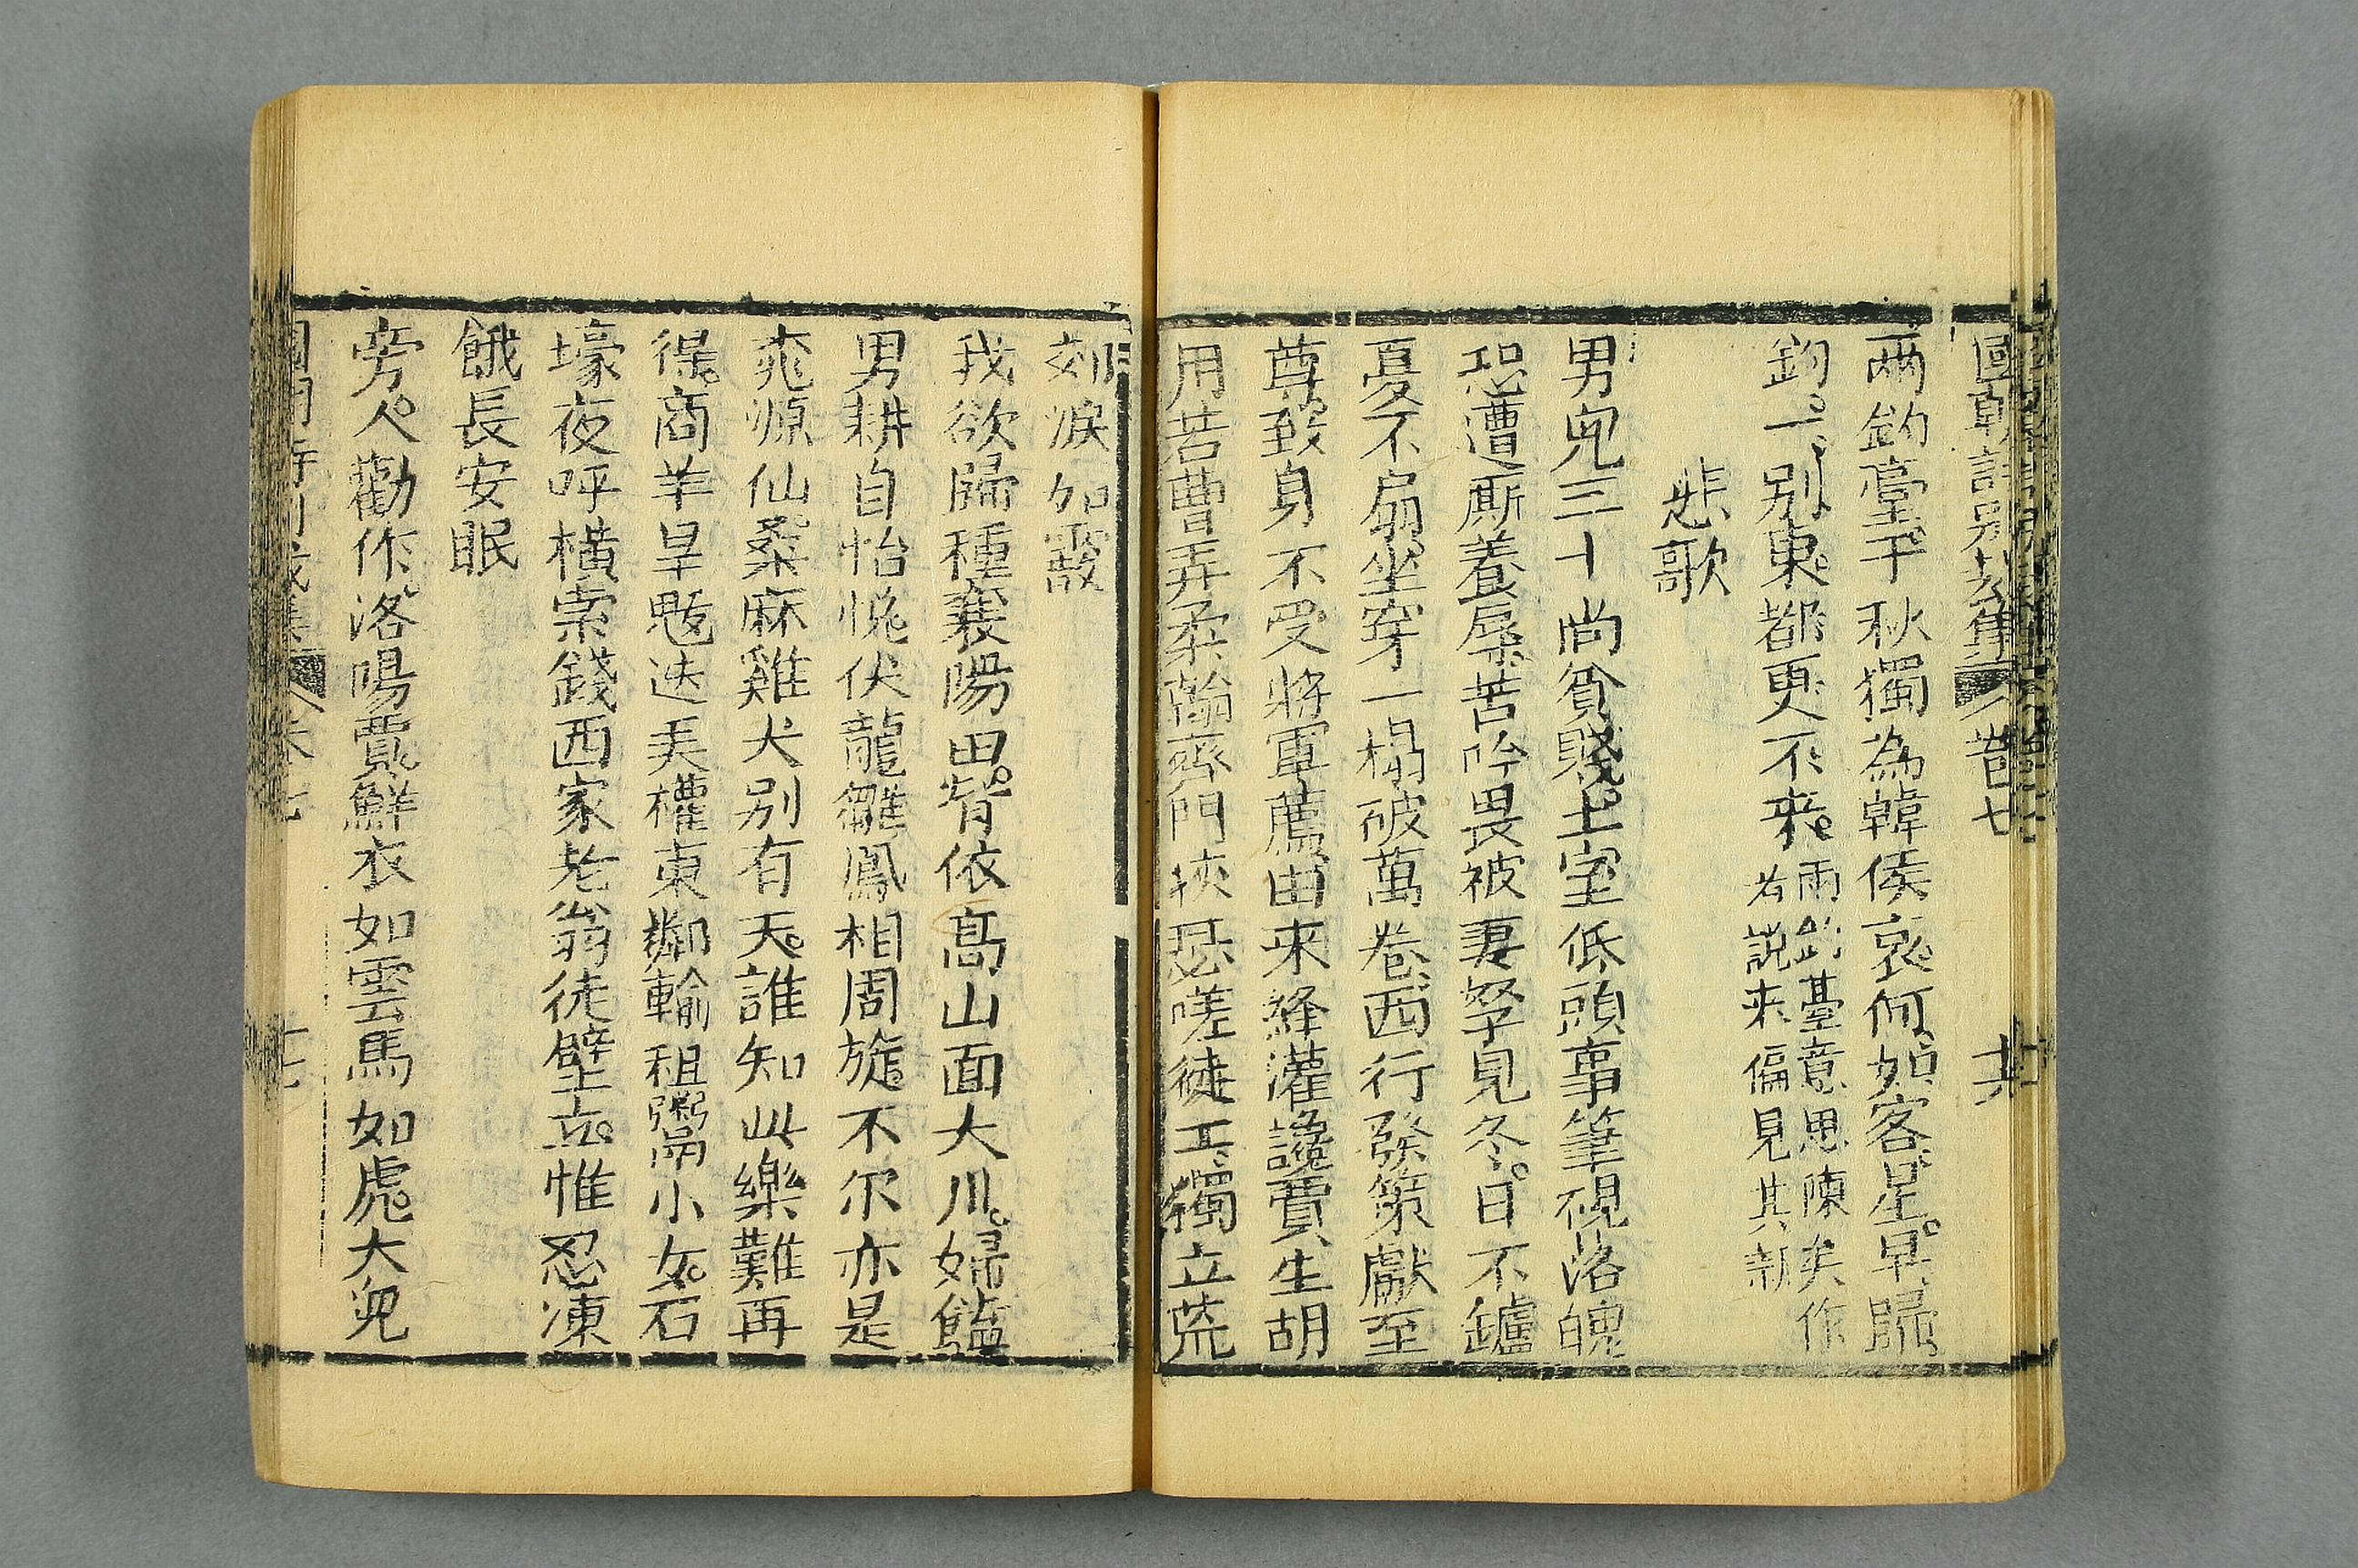 國朝詩別裁集 卷七 十六
兩釣臺千秋獨為韓侯哀何如客星早歸
釣一别東都更不来
兩釣臺意思陳矣作
者說来偏見其新
悲歌
男兒三十尚貧賤土室低頭事筆硯落魄
恐遭厮養辱苦吟畏被妻孥見冬日不鑪
夏不扇坐穿一榻破萬卷西行發策獻至
尊致身不受將軍薦由来絳灌讒賈生胡
用苦曹弄柔翰齊門挾瑟嗟徒工獨立荒
郊淚如霰
我欲歸種襄陽田背依高山面大川婦饁
男耕自怡悅伏龍雛鳳相周旋不尔亦是
桃源仙桑麻雞犬别有天誰知此樂難再
得商羊旱魃迭美權東鄰輸租鬻小女石
壕夜呼橫索錢西家老翁徒壁立惟忍凍
餓長安眠
旁人勸作洛陽賈鮮衣如雲馬如虎大兒